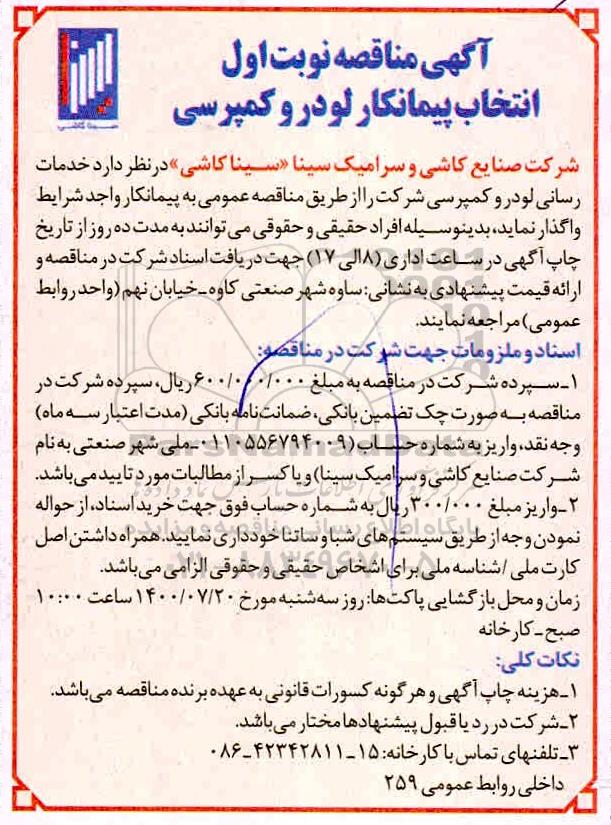 آگهی مناقصه نوبت اول
انتخاب پیمانکار لودر و کمپرسی
سینا کاشی
شرکت صنایع کاشی و سرامیک سینا «سینا کاشی» در نظر دارد خدمات
رسانی لودر و کمپرسی شرکت را از طریق مناقصه عمومی به پیمانکار واجد شرایط
واگذار نماید، بدینوسیله افراد حقیقی و حقوقی می توانند به مدت ده روز از تاریخ
چاپ آگهی در ساعت اداری (۸ الی ۱۷) جهت دریافت اسناد شرکت در مناقصه و
ارائه قیمت پیشنهادی به نشانی: ساوه شهر صنعتی کاوه ـ خیابان نهم (واحد روابط
عمومی) مراجعه نمایند.
اسناد و ملزومات جهت شرکت در مناقصه:
۱ـ سپرده شرکت در مناقصه به مبلغ ۶۰۰/۰۰۰/۰۰۰ ریال، سپرده شرکت در
مناقصه به صورت چک تضمین بانکی، ضمانت نامه بانکی (مدت اعتبار سه ماه)
وجه نقد، واریز به شماره حساب (۰۱۱۰۵۵۶۷۹۴۰۰۹ـ ملی شهر صنعتی به نام
شرکت صنایع کاشی و سرامیک سینا) و یا کسر از مطالبات مورد تایید می باشد.
۲ـ واریز مبلغ ۳۰۰/۰۰۰ ریال به شماره حساب فوق جهت خرید اسناد، از حواله
نمودن وجه از طریق سیستم های شبا و ساتنا خودداری نمایید. همراه داشتن اصل
کارت ملی / شناسه ملی برای اشخاص حقیقی و حقوقی الزامی می باشد.
زمان و محل بازگشایی پاکت ها: روز سه شنبه مورخ ۱۴۰۰/۰۷/۲۰ ساعت ۱۰:۰۰
صبح ـ کارخانه
نکات کلی:
۱ـ هزینه چاپ آگهی و هر گونه کسورات قانونی به عهده برنده مناقصه می باشد.
۲ـ شرکت در رد یا قبول پیشنهادها مختار می باشد.
۳ـ تلفنهای تماس با کارخانه: ۱۵ـ۴۲۳۴۲۸۱۱ـ۰۸۶
داخلی روابط عمومی ۲۵۹
ParsNamadData
پایگاه اطلاع رسانی مناقصه و مزایده